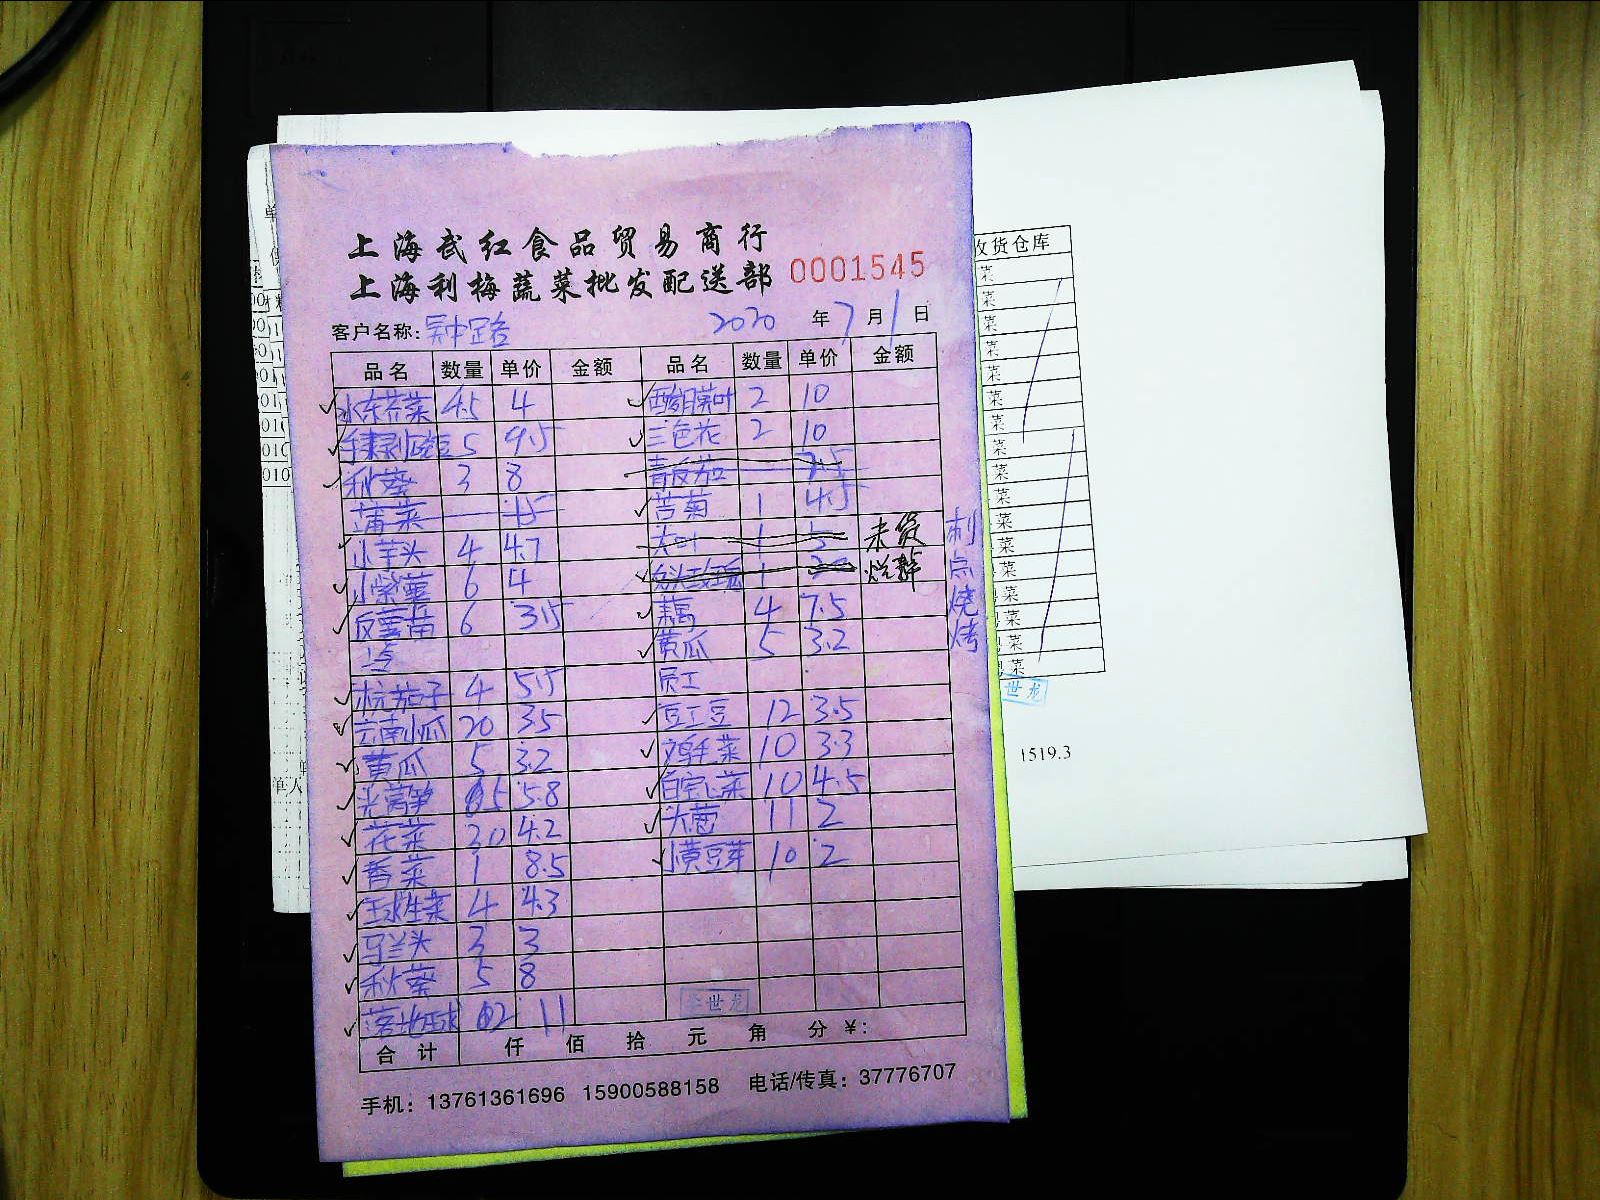 上海武红食品贸易商行
上海利梅蔬菜批发配送部 0001545
客户名称: 吴中路 2020 年 7 月 1 日
品名 数量 单价 金额 品名 数量 单价 金额
水东芥菜 4.5 4 酸模叶 2 10
5 9.5 三色花 2 10
秋葵 3 8 青反茄 7.5
蒲菜 15 苦菊 1 4.5
小芋头 4 4.7 大叶 1 5 未货
小紫薯 6 4 1
豆苗 6 3.5 藕 4 7.5
点 黄瓜 5 3.2
杭茄子 4 5.5 员工
云南小瓜 20 3.5 豇豆 12 3.5
黄瓜 5 3.2 鸡毛菜 10 3.3
尖莴笋 5.8 白空心菜 10 4.5
花菜 30 4.2 11 2
香菜 1 8.5 小黄豆芽 10 2
玉球生菜 4 4.3
马兰头 3 3
秋葵 5 8
落地球 11
合计 仟 佰 拾 元 角 分 ¥:
手机: 13761361696 15900588158 电话/传真: 37776707
点
烧
烤
收货仓库
菜
菜
菜
菜
菜
菜
菜
菜
菜
菜
菜
菜
菜
菜
菜
菜
菜
世龙
世龙
1519.3